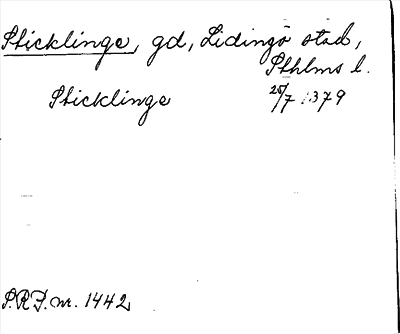 Sticklinge, gd, Lidingö stad,
Sthlms l.
Sticklinge 25/7 1379
S.R.P. nr. 1442